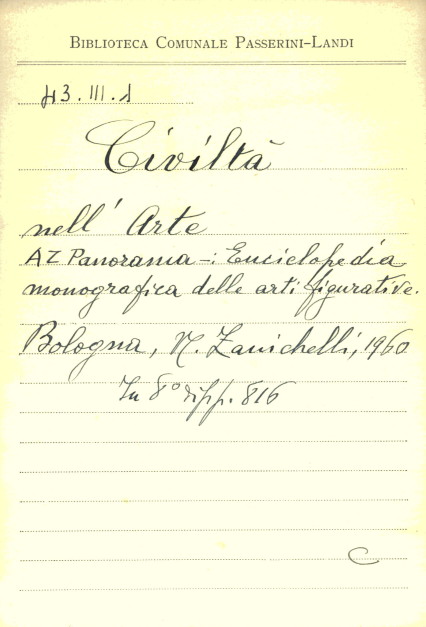 BIBLIOTECA COMUNALE PASSERINI-LANDI
43.III.1
Civiltà
nell' Arte
AZ Panorama -: Enciclopedia
monografica delle arti figurative.
Bologna, N. Zanichelli, 1960
In 8° di pp. 816
C